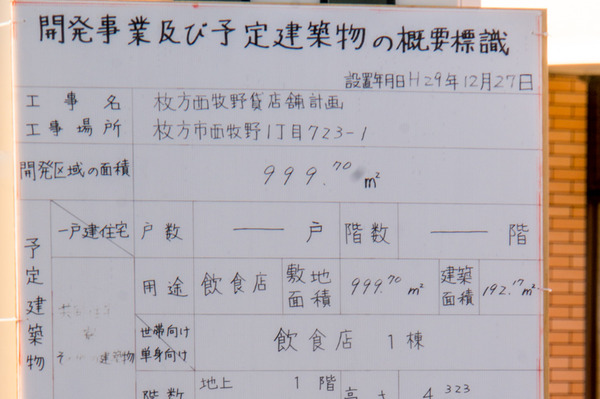 開発事業及び予定建築物の概要標識
設置年月日 H29年12月27日
工事名 枚方西牧野貸店舗計画
工事場所 枚方市西牧野1丁目723-1
開発区域の面積 999.70 m²
予定建築物
一戸建住宅 戸数 ― 戸 階数 ― 階
用途 飲食店 敷地面積 999.70 m² 建築面積 192.17m²
世帯向け
単身向け 飲食店 1棟
階数 地上 1階 高さ 4.323